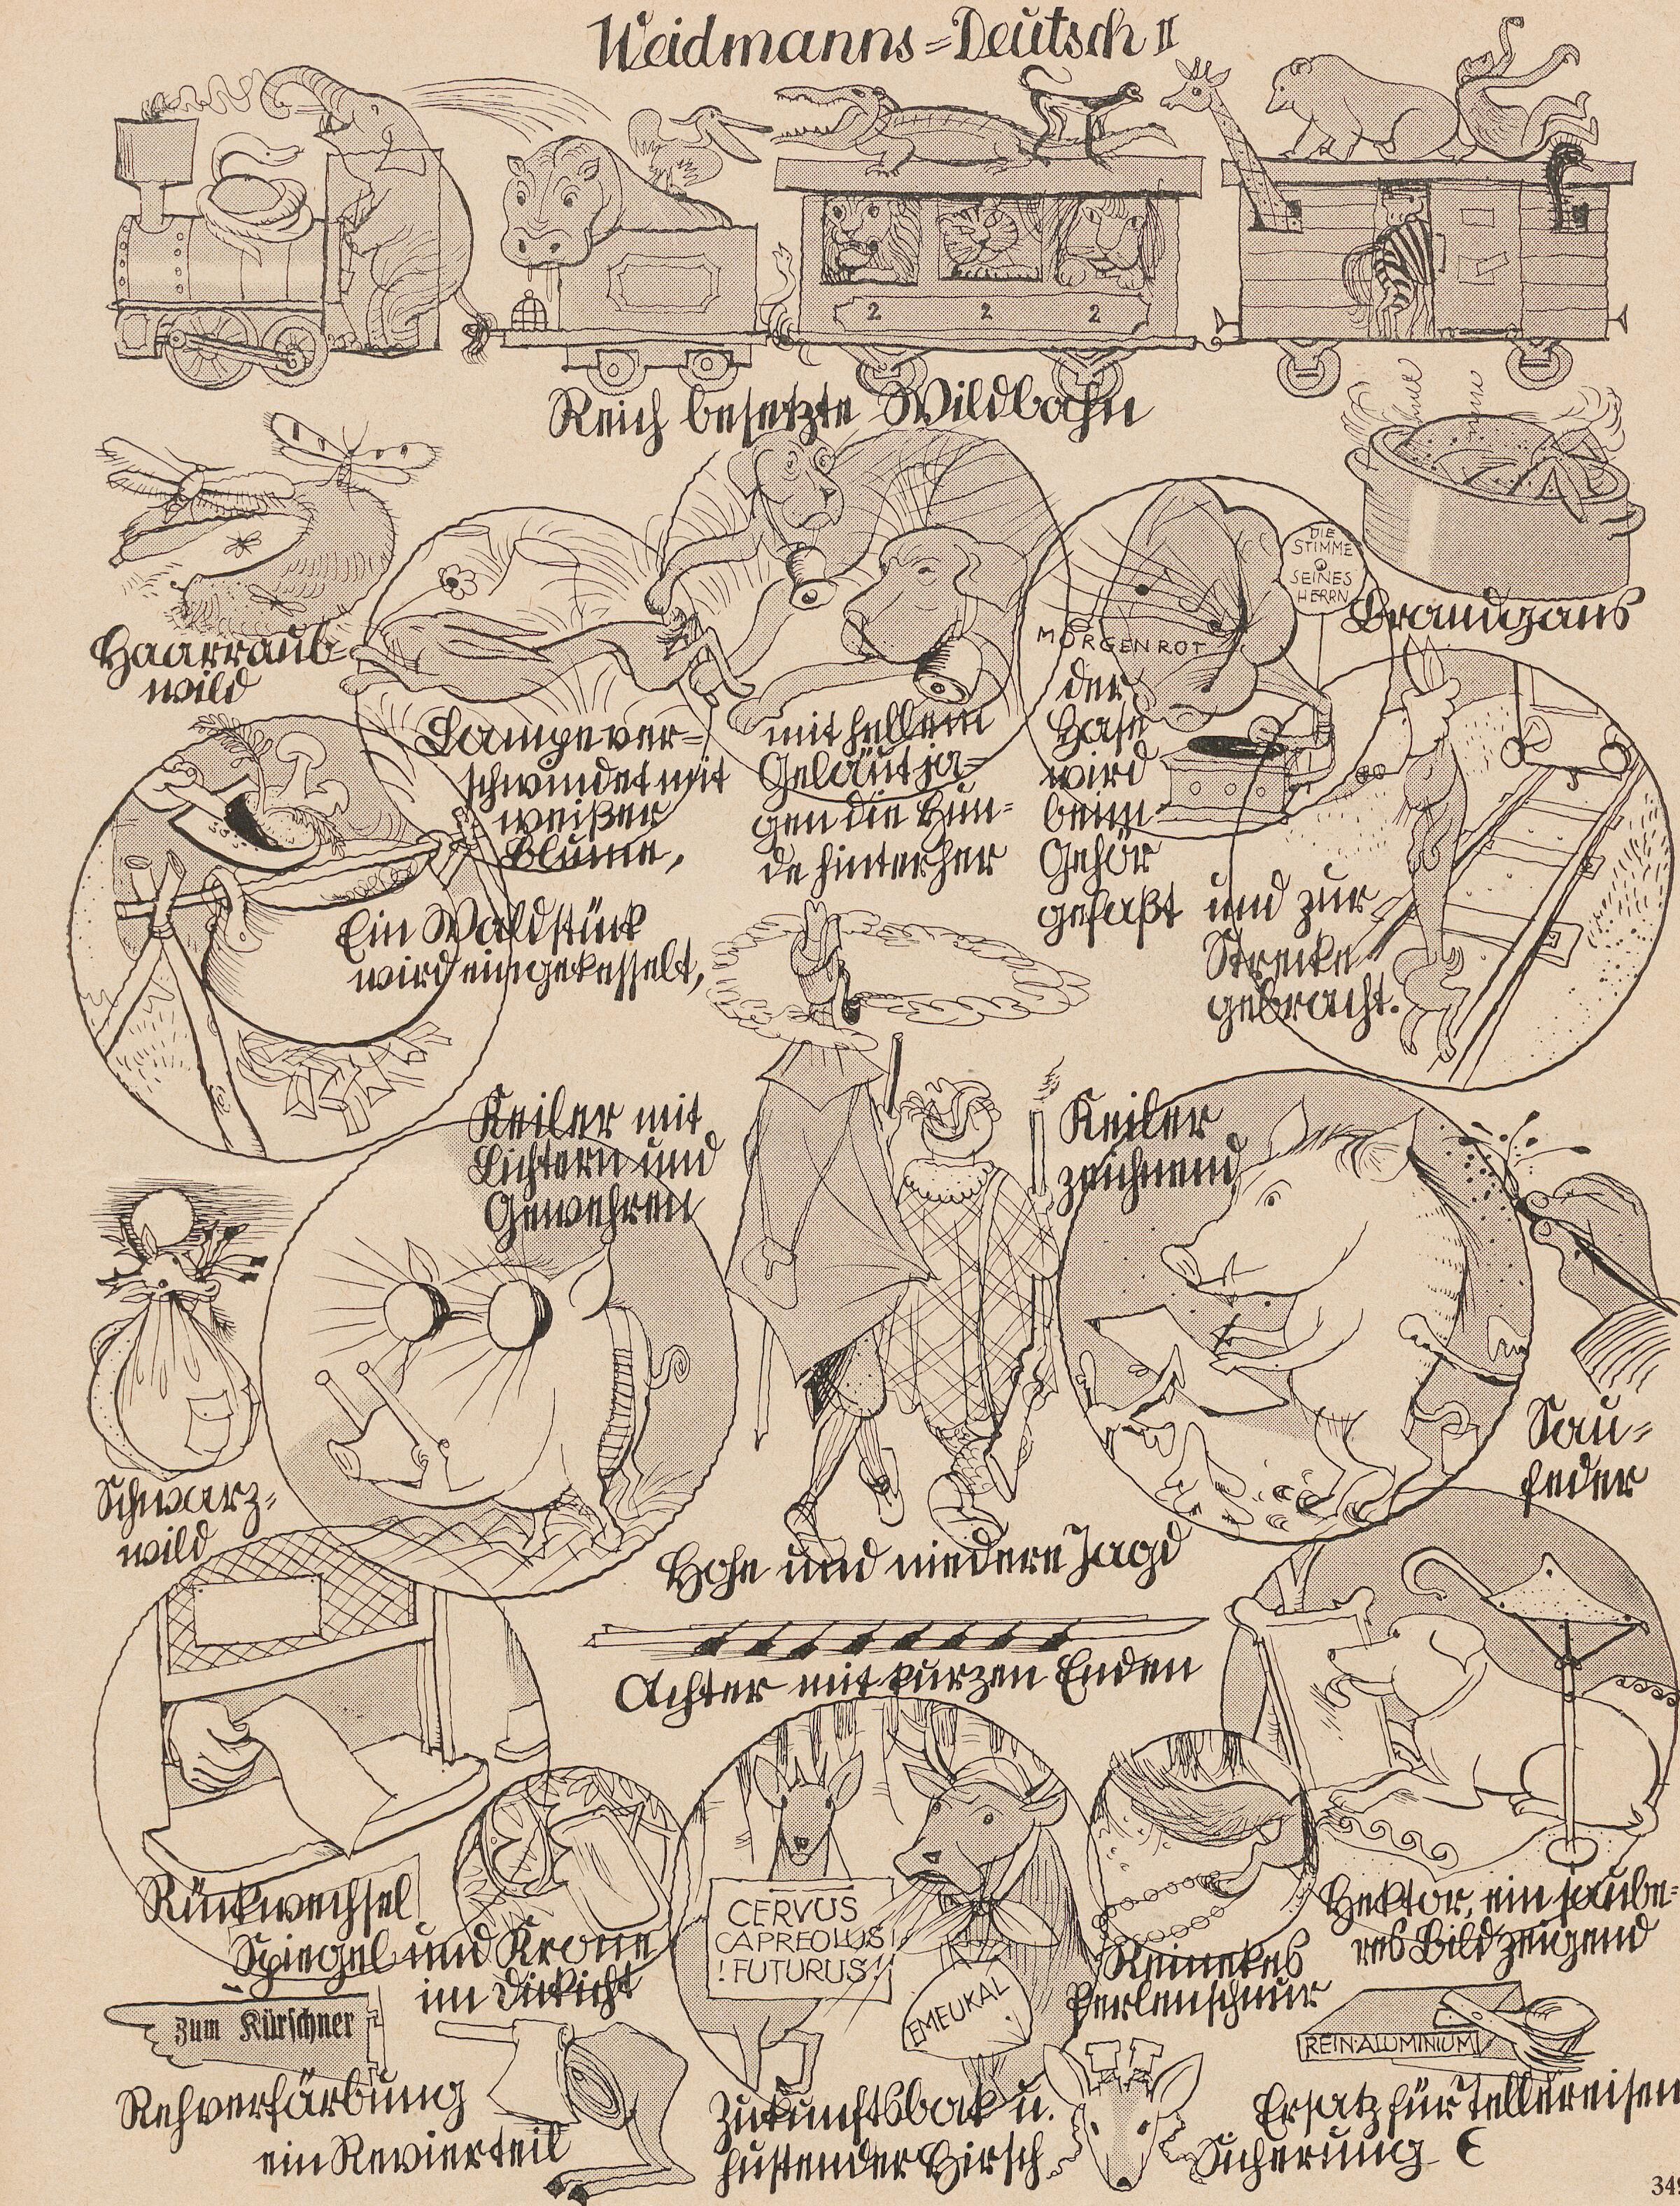 Weidmanns=Deutsch II
2 2 2
Reich besetzte Wildbahn
Haarraub=
wild
Lampe ver=
schwindet mit
weißer
Blume,
mit hellem
Geläut ja=
gen die Hun=
de hinterher
DIE
STIMME
SEINES
HERRN
MORGENROT
der
Hase
wird
beim
Gehör
gefaßt
und zur
Strecke
gebracht.
Brandgans
Ein Waldstück
wird eingekesselt,
Keiler mit
Lichtern und
Gewehren
Keiler
zeichnend
Schwarz=
wild
Sau=
feder
Hohe und niedere Jagd
Achter mit kurzen Enden
Rückwechsel
Spiegel und Krone
im Dickicht
CERVUS
CAPREOLUS!
! FUTURUS!
EMEUKAL
Reinekes
Perlenschnur
Hektor, ein saube=
res Bild zeigend
zum Kürschner
Rehverfärbung
ein Revierteil
Zukunftsbock u.
hustender Hirsch
REIN-ALUMINIUM
Ersatz für Tellereisen
Sicherung
349